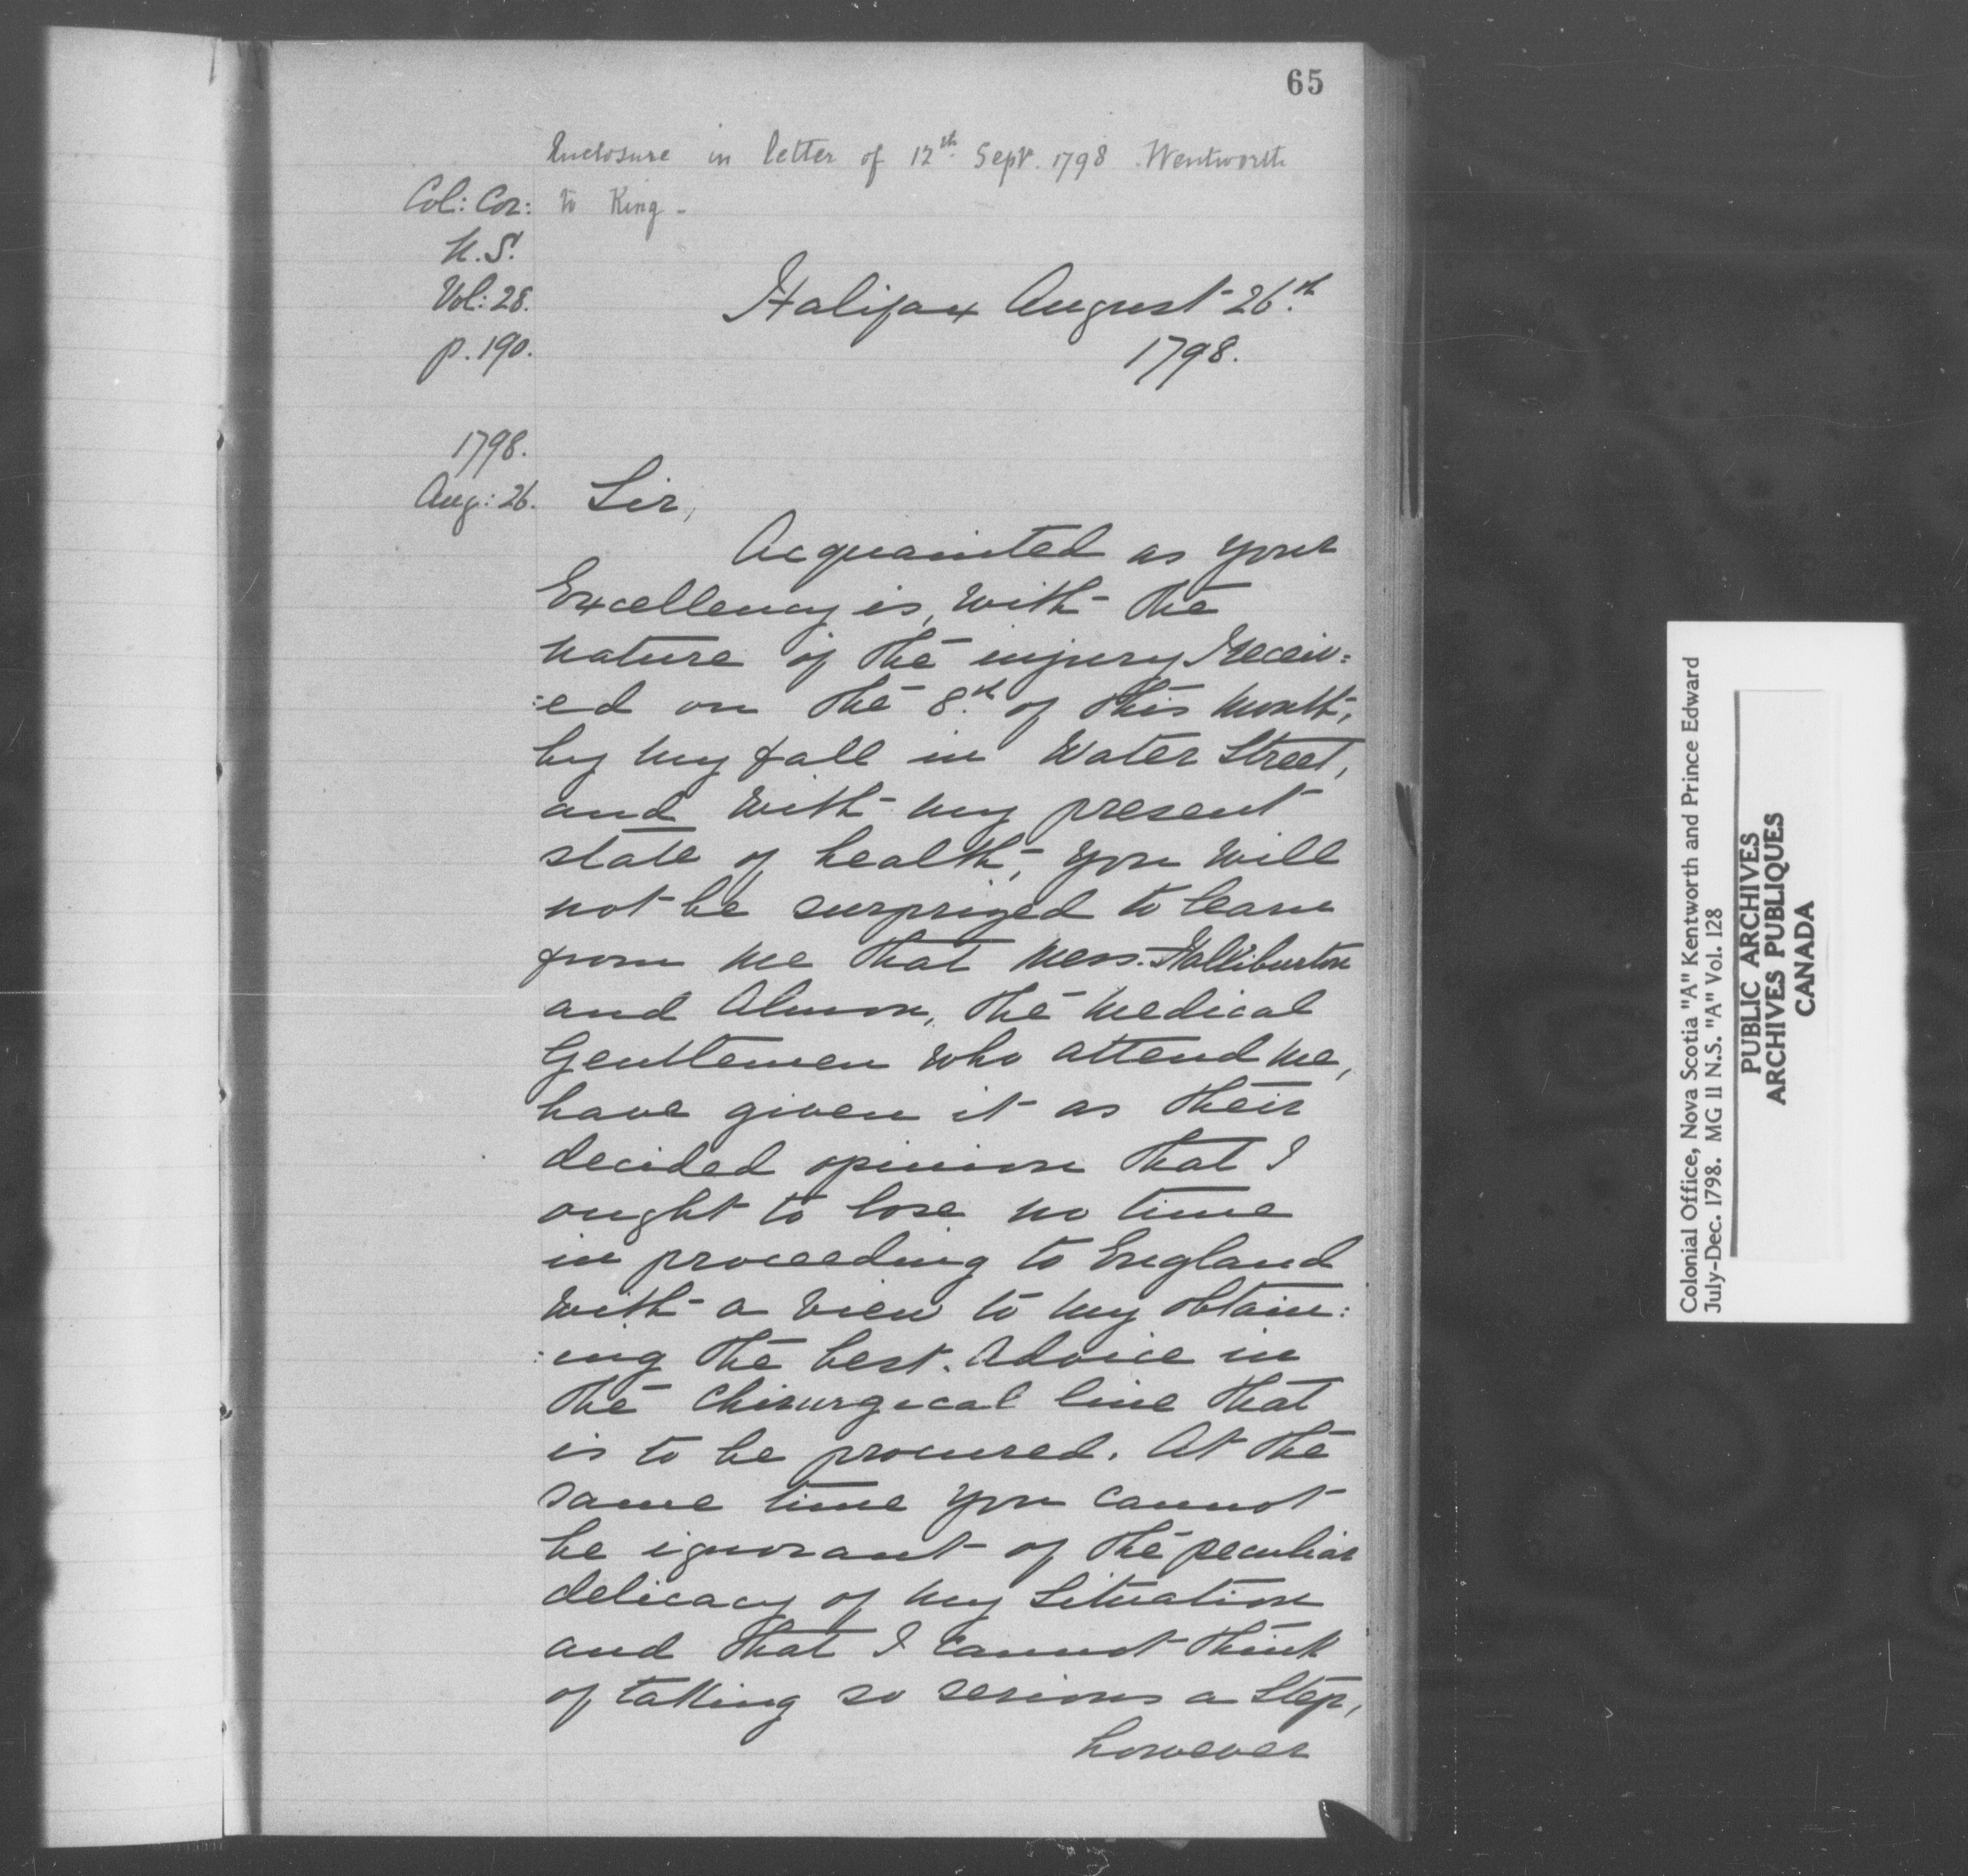 65
Enclosure in letter of 12th Sept. 1798 Wentworth
to King -
Col: Cor:
N.S.
Vol: 28.
p. 190.
Halifax August 26.th
1798.
1798.
Aug: 26.
Sir,
Acquainted as your
Excellency is, with the
nature of the injury I receiv:
:ed on the 8.th of this month,
by my fall in Water Street,
and with my present
state of health, you will
not be surprized to learn
from me that Mess. Halliburton
and Almon, the Medical
Gentlemen who attend me,
have given it as their
decided opinion that I
ought to lose no time
in proceeding to England
with a view to my obtain:
:ing the best advice in
the Chirurgical line that
is to be procured. At the
same time you cannot
be ignorant of the peculiar
delicacy of my Situation
and that I cannot think
of taking so serious a Step,
however
Colonial Office, Nova Scotia "A" Kentworth and Prince Edward
July-Dec. 1798. MG 11 N.S. "A" Vol. 128
PUBLIC ARCHIVES
ARCHIVES PUBLIQUES
CANADA